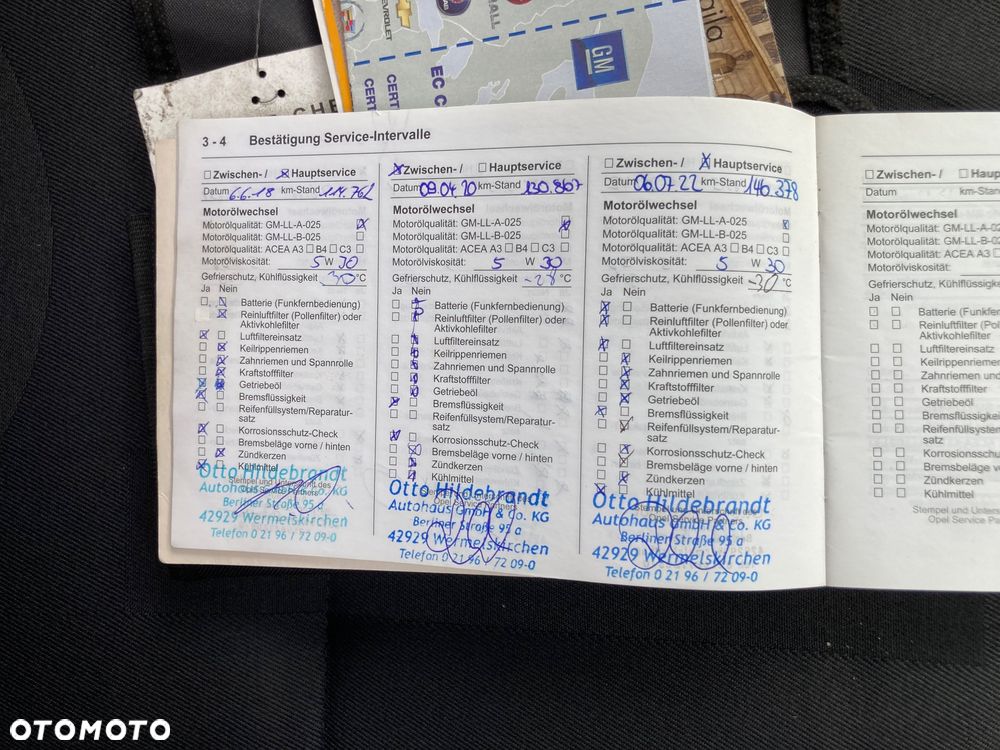 CHE
CHEVROLET
HALL
aila
CERT
CERT
EC C
GM
3 - 4 Bestätigung Service-Intervalle
Zwischen- / Hauptservice
Datum 6.6.18 km-Stand 114.762
Motorölwechsel
Motorölqualität: GM-LL-A-025
Motorölqualität: GM-LL-B-025
Motorölqualität: ACEA A3 B4 C3
Motorölviskosität: 5 W 30
Gefrierschutz, Kühlflüssigkeit -30 °C
Ja Nein
Batterie (Funkfernbedienung)
Reinluftfilter (Pollenfilter) oder
Aktivkohlefilter
Luftfiltereinsatz
Keilrippenriemen
Zahnriemen und Spannrolle
Kraftstofffilter
Getriebeöl
Bremsflüssigkeit
Reifenfüllsystem/Reparatur-
satz
Korrosionsschutz-Check
Bremsbeläge vorne / hinten
Zündkerzen
Kühlmittel
Otto Hildebrandt
Stempel und Unterschrift des
Opel Service Partners
Autohaus GmbH & Co. KG
Berliner Straße 95 a
42929 Wermelskirchen
Telefon 0 21 96 / 72 09-0
Zwischen- / Hauptservice
Datum 09.04.20 km-Stand 130.867
Motorölwechsel
Motorölqualität: GM-LL-A-025
Motorölqualität: GM-LL-B-025
Motorölqualität: ACEA A3 B4 C3
Motorölviskosität: 5 W 30
Gefrierschutz, Kühlflüssigkeit -28 °C
Ja Nein
Batterie (Funkfernbedienung)
Reinluftfilter (Pollenfilter) oder
Aktivkohlefilter
Luftfiltereinsatz
Keilrippenriemen
Zahnriemen und Spannrolle
Kraftstofffilter
Getriebeöl
Bremsflüssigkeit
Reifenfüllsystem/Reparatur-
satz
Korrosionsschutz-Check
Bremsbeläge vorne / hinten
Zündkerzen
Kühlmittel
Otto Hildebrandt
Autohaus GmbH & Co. KG
Berliner Straße 95 a
42929 Wermelskirchen
Telefon 0 21 96 / 72 09-0
Zwischen- / Hauptservice
Datum 06.07.22 km-Stand 146.378
Motorölwechsel
Motorölqualität: GM-LL-A-025
Motorölqualität: GM-LL-B-025
Motorölqualität: ACEA A3 B4 C3
Motorölviskosität: 5 W 30
Gefrierschutz, Kühlflüssigkeit -30 °C
Ja Nein
Batterie (Funkfernbedienung)
Reinluftfilter (Pollenfilter) oder
Aktivkohlefilter
Luftfiltereinsatz
Keilrippenriemen
Zahnriemen und Spannrolle
Kraftstofffilter
Getriebeöl
Bremsflüssigkeit
Reifenfüllsystem/Reparatur-
satz
Korrosionsschutz-Check
Bremsbeläge vorne / hinten
Zündkerzen
Kühlmittel
Otto Hildebrandt
Opel Service Partners
Autohaus GmbH & Co. KG
Berliner Straße 95 a
42929 Wermelskirchen
Telefon 0 21 96 / 72 09-0
Zwischen- / Haup
Datum km-Stan
Motorölwechsel
Motorölqualität: GM-LL-A-0
Motorölqualität: GM-LL-B-0
Motorölqualität: ACEA A3
Motorölviskosität:
Gefrierschutz, Kühlflüssigke
Ja Nein
Batterie (Funkfer
Reinluftfilter (Pol
Aktivkohlefilter
Luftfiltereinsatz
Keilrippenriemen
Zahnriemen und
Kraftstofffilter
Getriebeöl
Bremsflüssigkei
Reifenfüllsystem
satz
Korrosionsschutz
Bremsbeläge vo
Zündkerzen
Kühlmittel
Stempel und Unters
Opel Service Pa
OTOMOTO